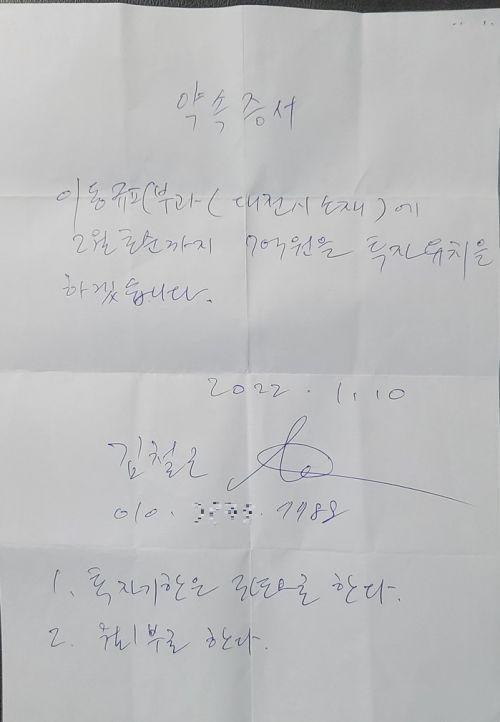 약속증서
이동규피부과(대전시소재)에
2월초순까지 7억원을 투자유치를
하겠습니다.
2022. 1. 10
김철근
010. 7788
1. 투자기한은 으로 한다.
2. 로 한다.